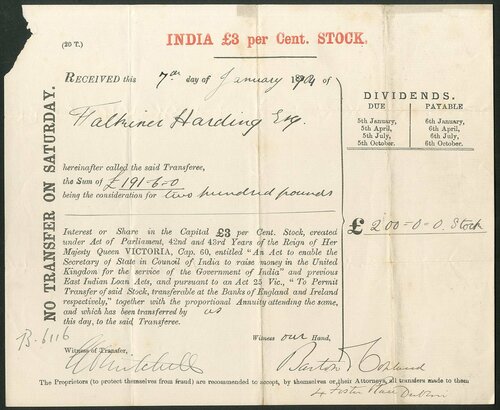 (20 T.)
INDIA £3 per Cent. STOCK.
NO TRANSFER ON SATURDAY.
RECEIVED this 7th day of January 1904 of
Falkiner Harding Esq.
hereinafter called the said Transferee,
the Sum of £191-6-0
being the consideration for two hundred pounds
DIVIDENDS.
DUE PAYABLE
5th January, 6th January,
5th April, 6th April,
5th July, 6th July,
5th October. 6th October.
£ 200-0-0. Stock
Interest or Share in the Capital £3 per Cent. Stock, created
under Act of Parliament, 42nd and 43rd Years of the Reign of Her
Majesty Queen VICTORIA, Cap. 60, entitled "An Act to enable the
Secretary of State in Council of India to raise money in the United
Kingdom for the service of the Government of India" and previous
East Indian Loan Acts, and pursuant to an Act 25 Vic., "To Permit
Transfer of said Stock, transferable at the Banks of England and Ireland
respectively," together with the proportional Annuity attending the same,
and which has been transferred by us
this day, to the said Transferee.
B. 6116
Witness our Hand,
Witness of Transfer,
Mitchell
Barton
The Proprietors (to protect themselves from fraud) are recommended to accept, by themselves or their Attorneys, all transfers made to them
4 Foster Place Dublin